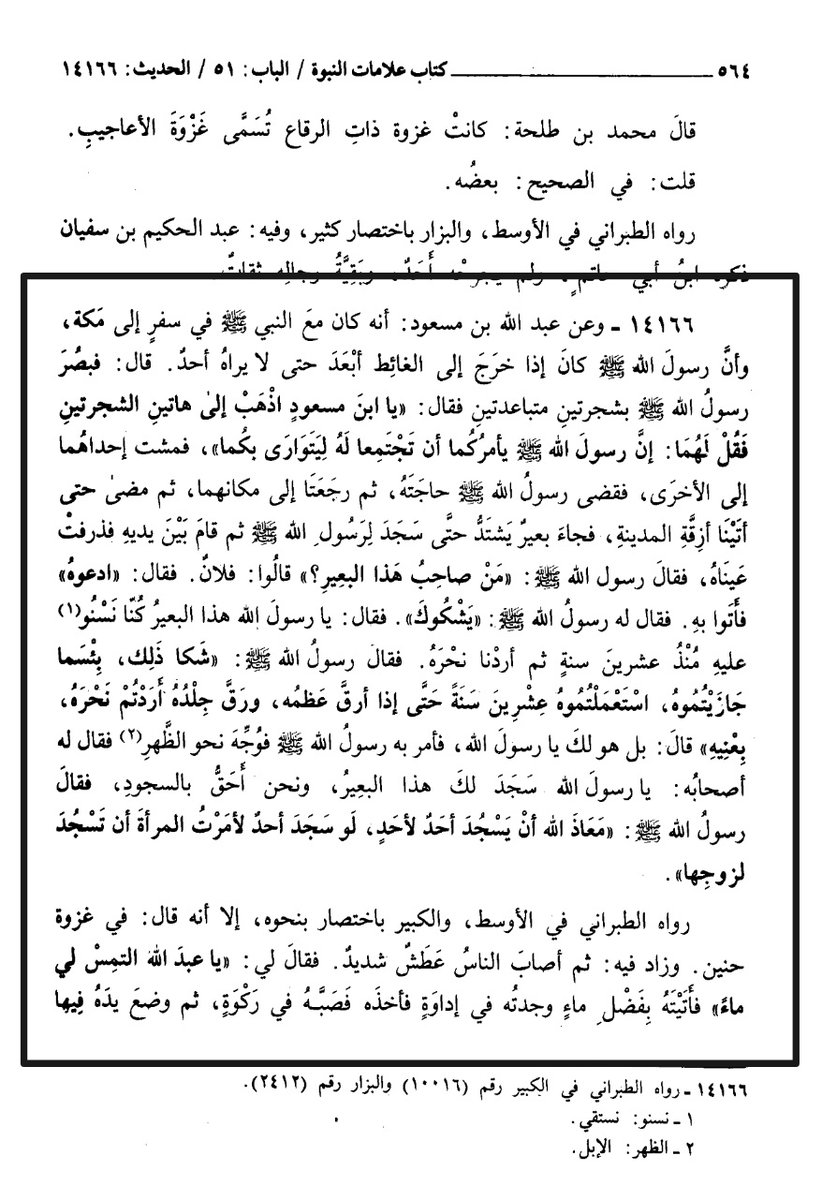 ٥٦٤ ــــــــــــــــــــــــ كتاب علامات النبوة / الباب: ٥١ / الحديث: ١٤١٦٦
قالَ محمد بن طلحة: كانتْ غزوة ذاتِ الرقاع تُسَمَّى غَزْوَةَ الأعاجيبِ.
قلت: في الصحيح: بعضُه.
رواه الطبراني في الأوسط، والبزار باختصار كثير، وفيه: عبد الحكيم بن سفيان
ذكره ابنُ أبي حاتمٍ، ولم يجرحْه أَحَدٌ، وبَقِيَّةُ رجالِهِ ثقاتٌ.
١٤١٦٦ ـ وعن عبد الله بن مسعود: أنه كان معَ النبي ﷺ في سفرٍ إلى مَكة،
وأنَّ رسولَ الله ﷺ كانَ إذا خرَجَ إلى الغائِط أبْعَدَ حتى لا يراهُ أحدٌ. قال: فبصُرَ
رسولُ الله ﷺ بشجرتينِ متباعدتينِ فقال: «يا ابنَ مسعودٍ اذْهَبْ إلىٰ هاتينِ الشجرتينِ
فَقُلْ لَهُمَا: إنَّ رسولَ الله ﷺ يأمرُكُما أن تَجْتَمِعا لَهُ لِيَتَوَارَى بكُما»، فمشت إحداهُما
إلى الأخرَى، فقضى رسولُ الله ﷺ حاجَتَهُ، ثم رجَعَتَا إلى مكانهما، ثم مضىٰ حتى
أتَيْنَا أزِقَّةِ المدينةِ، فجاءَ بعيرٌ يَشتَدُّ حتَّى سَجَدَ لِرَسُولِ الله ﷺ ثم قامَ بَيْنَ يديهِ فذرفتْ
عَينَاهُ، فقالَ رسول الله ﷺ: «مَنْ صاحِبُ هَذا البعيرِ؟» قالُوا: فلانٌ. فقال: «ادعوهُ»
فأَتَوا بهِ. فقال له رسولُ الله ﷺ: «يَشْكُوكَ». فقال: يا رسولَ الله هذا البعيرُ كُنّا نَسْنُو(١)
عليهِ مُنْذُ عشرينَ سنةٍ ثم أردْنا نحْرَهُ. فقالَ رسولُ الله ﷺ: «شَكا ذَلِكَ، بِئْسَما
جَازَيْتُمُوهُ، اسْتَعْمَلْتُمُوهُ عِشْرِينَ سَنَةً حَتَّى إذا أرقَّ عَظمُه، ورَقَّ جِلْدُهُ أَرَدْتُمْ نَحْرَهُ،
بِعْنِيهِ» قالَ: بل هو لكَ يا رسولَ الله، فأمر به رسولُ الله ﷺ فوُجِّهَ نحو الظَّهرِ(٢) فقال له
أصحابُه: يا رسولَ الله سَجَدَ لكَ هذا البعِيرُ، ونحن أَحَقُّ بالسجودِ، فقالَ
رسولُ الله ﷺ: «مَعَاذَ الله أنْ يَسْجُدَ أحَدٌ لأحَدٍ، لَو سَجَدَ أحدٌ لأمَرْتُ المرأةَ أن تَسْجُدَ
لزوجِها».
رواه الطبراني في الأوسط، والكبير باختصار بنحوه، إلا أنه قال: في غزوة
حنين. وزاد فيه: ثم أصابَ الناسُ عَطَشٌ شديدٌ. فقالَ لي: «يا عبدَ الله التمِسْ لي
ماءً» فأَتَيْتَهُ بِفَضْلِ ماءٍ وجدتُه في إداوَةٍ فأخذَه فَصَبَّهُ في رَكْوَةٍ، ثم وضعَ يدَهُ فيها
١٤١٦٦ ـ رواه الطبراني في الكبير رقم (١٠٠١٦) والبزار رقم (٢٤١٢).
١ ـ نسنو: نستقي.
٢ ـ الظهر: الإبل.